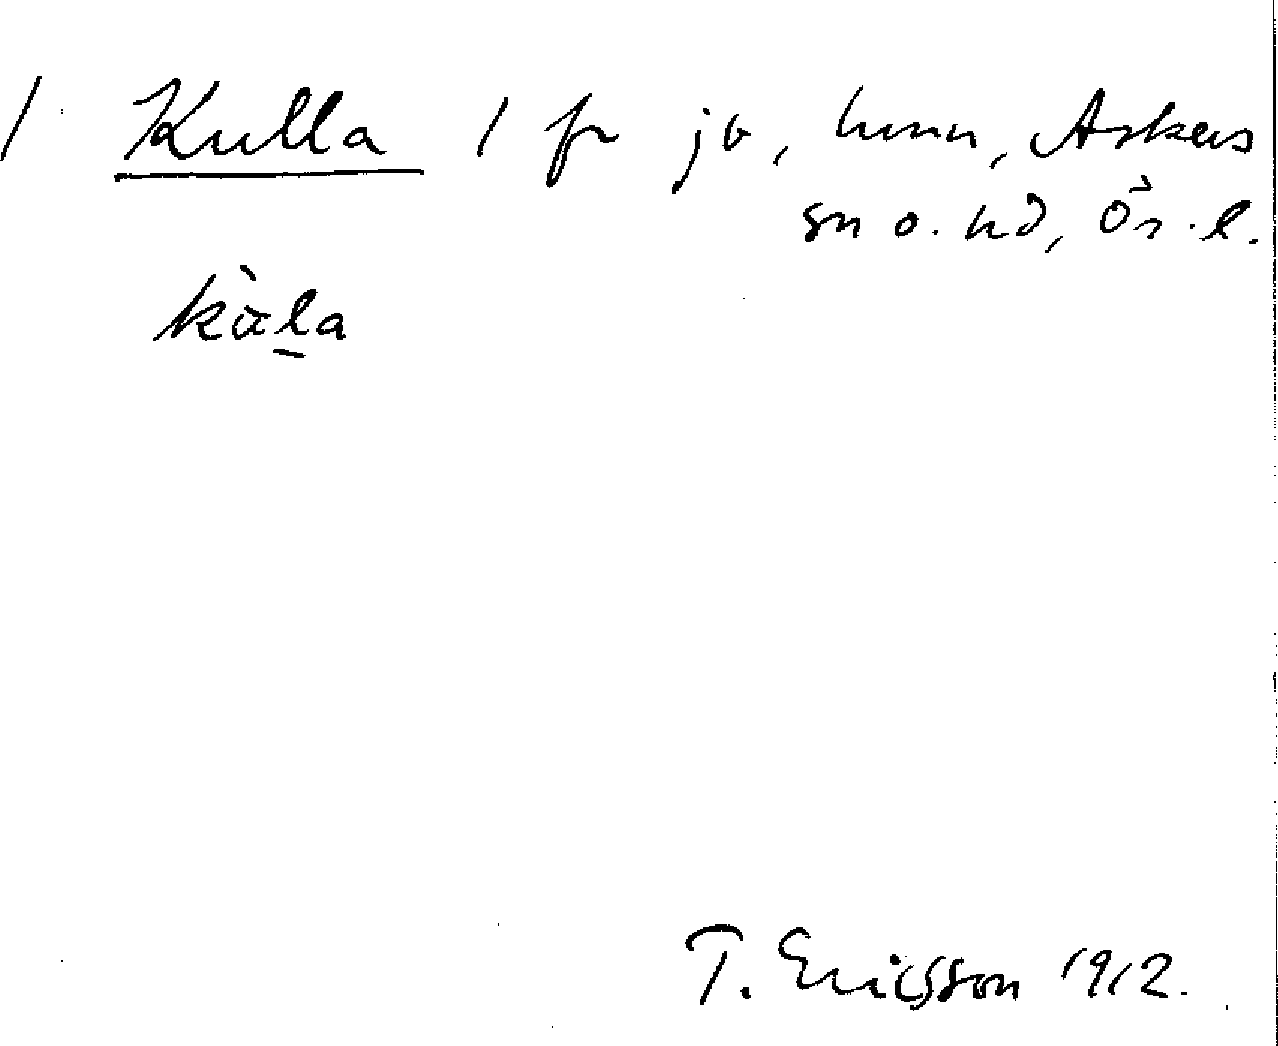 1 Kulla 1 fr jo, hmn, Askers
sn o. hd, Ör. l.
kùla
T. Ericsson 1912.